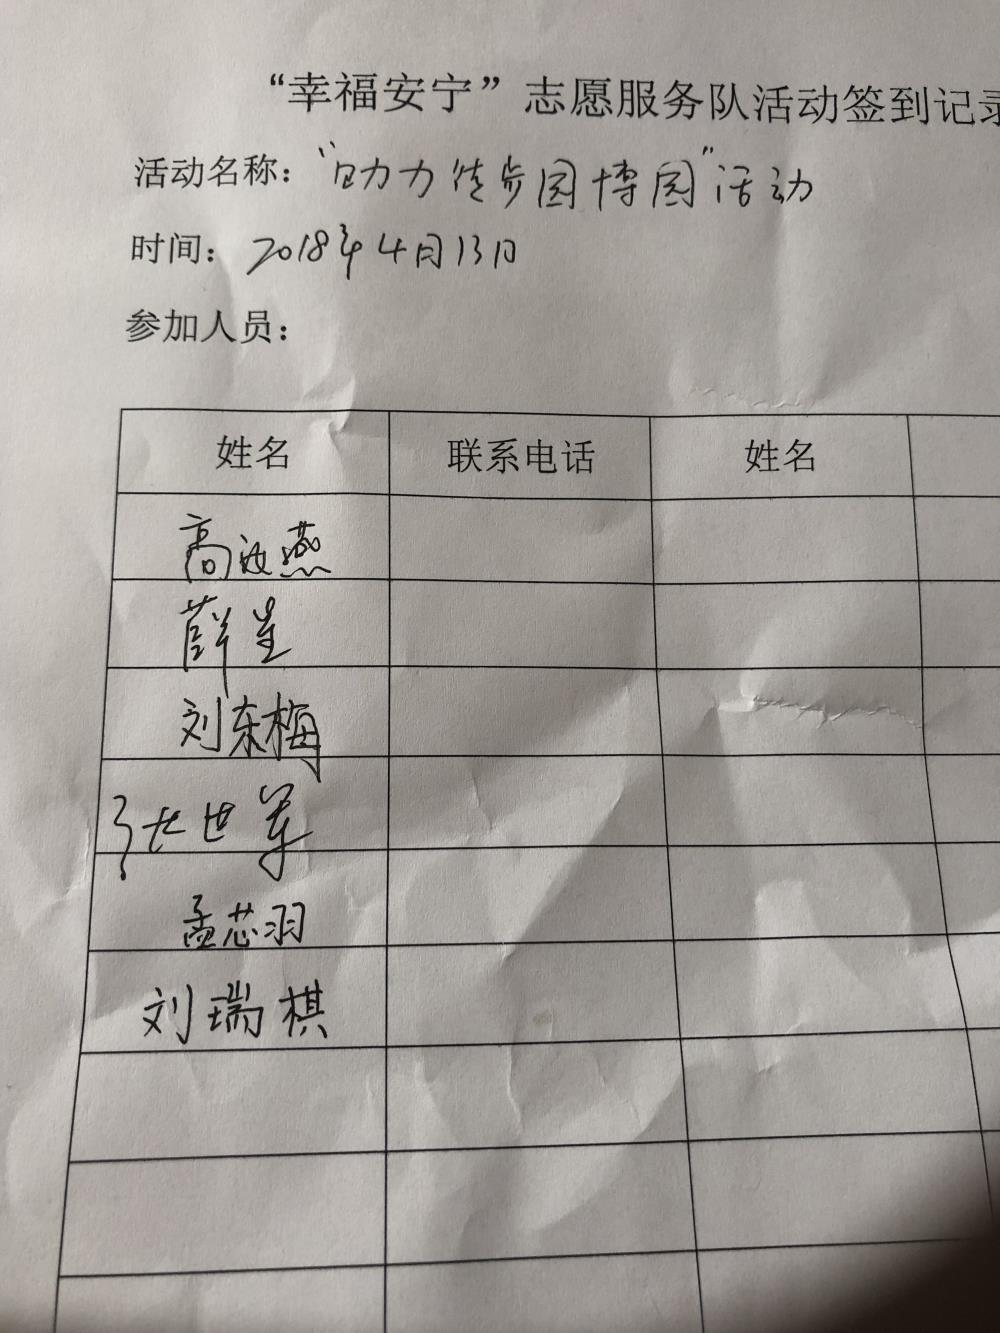 “幸福安宁”志愿服务队活动签到记录
活动名称：“助力徒步园博园”活动
时间：2018年4月13日
参加人员：
姓名 联系电话 姓名
高汝燕
薛星
刘东梅
张世军
孟芯羽
刘瑞棋